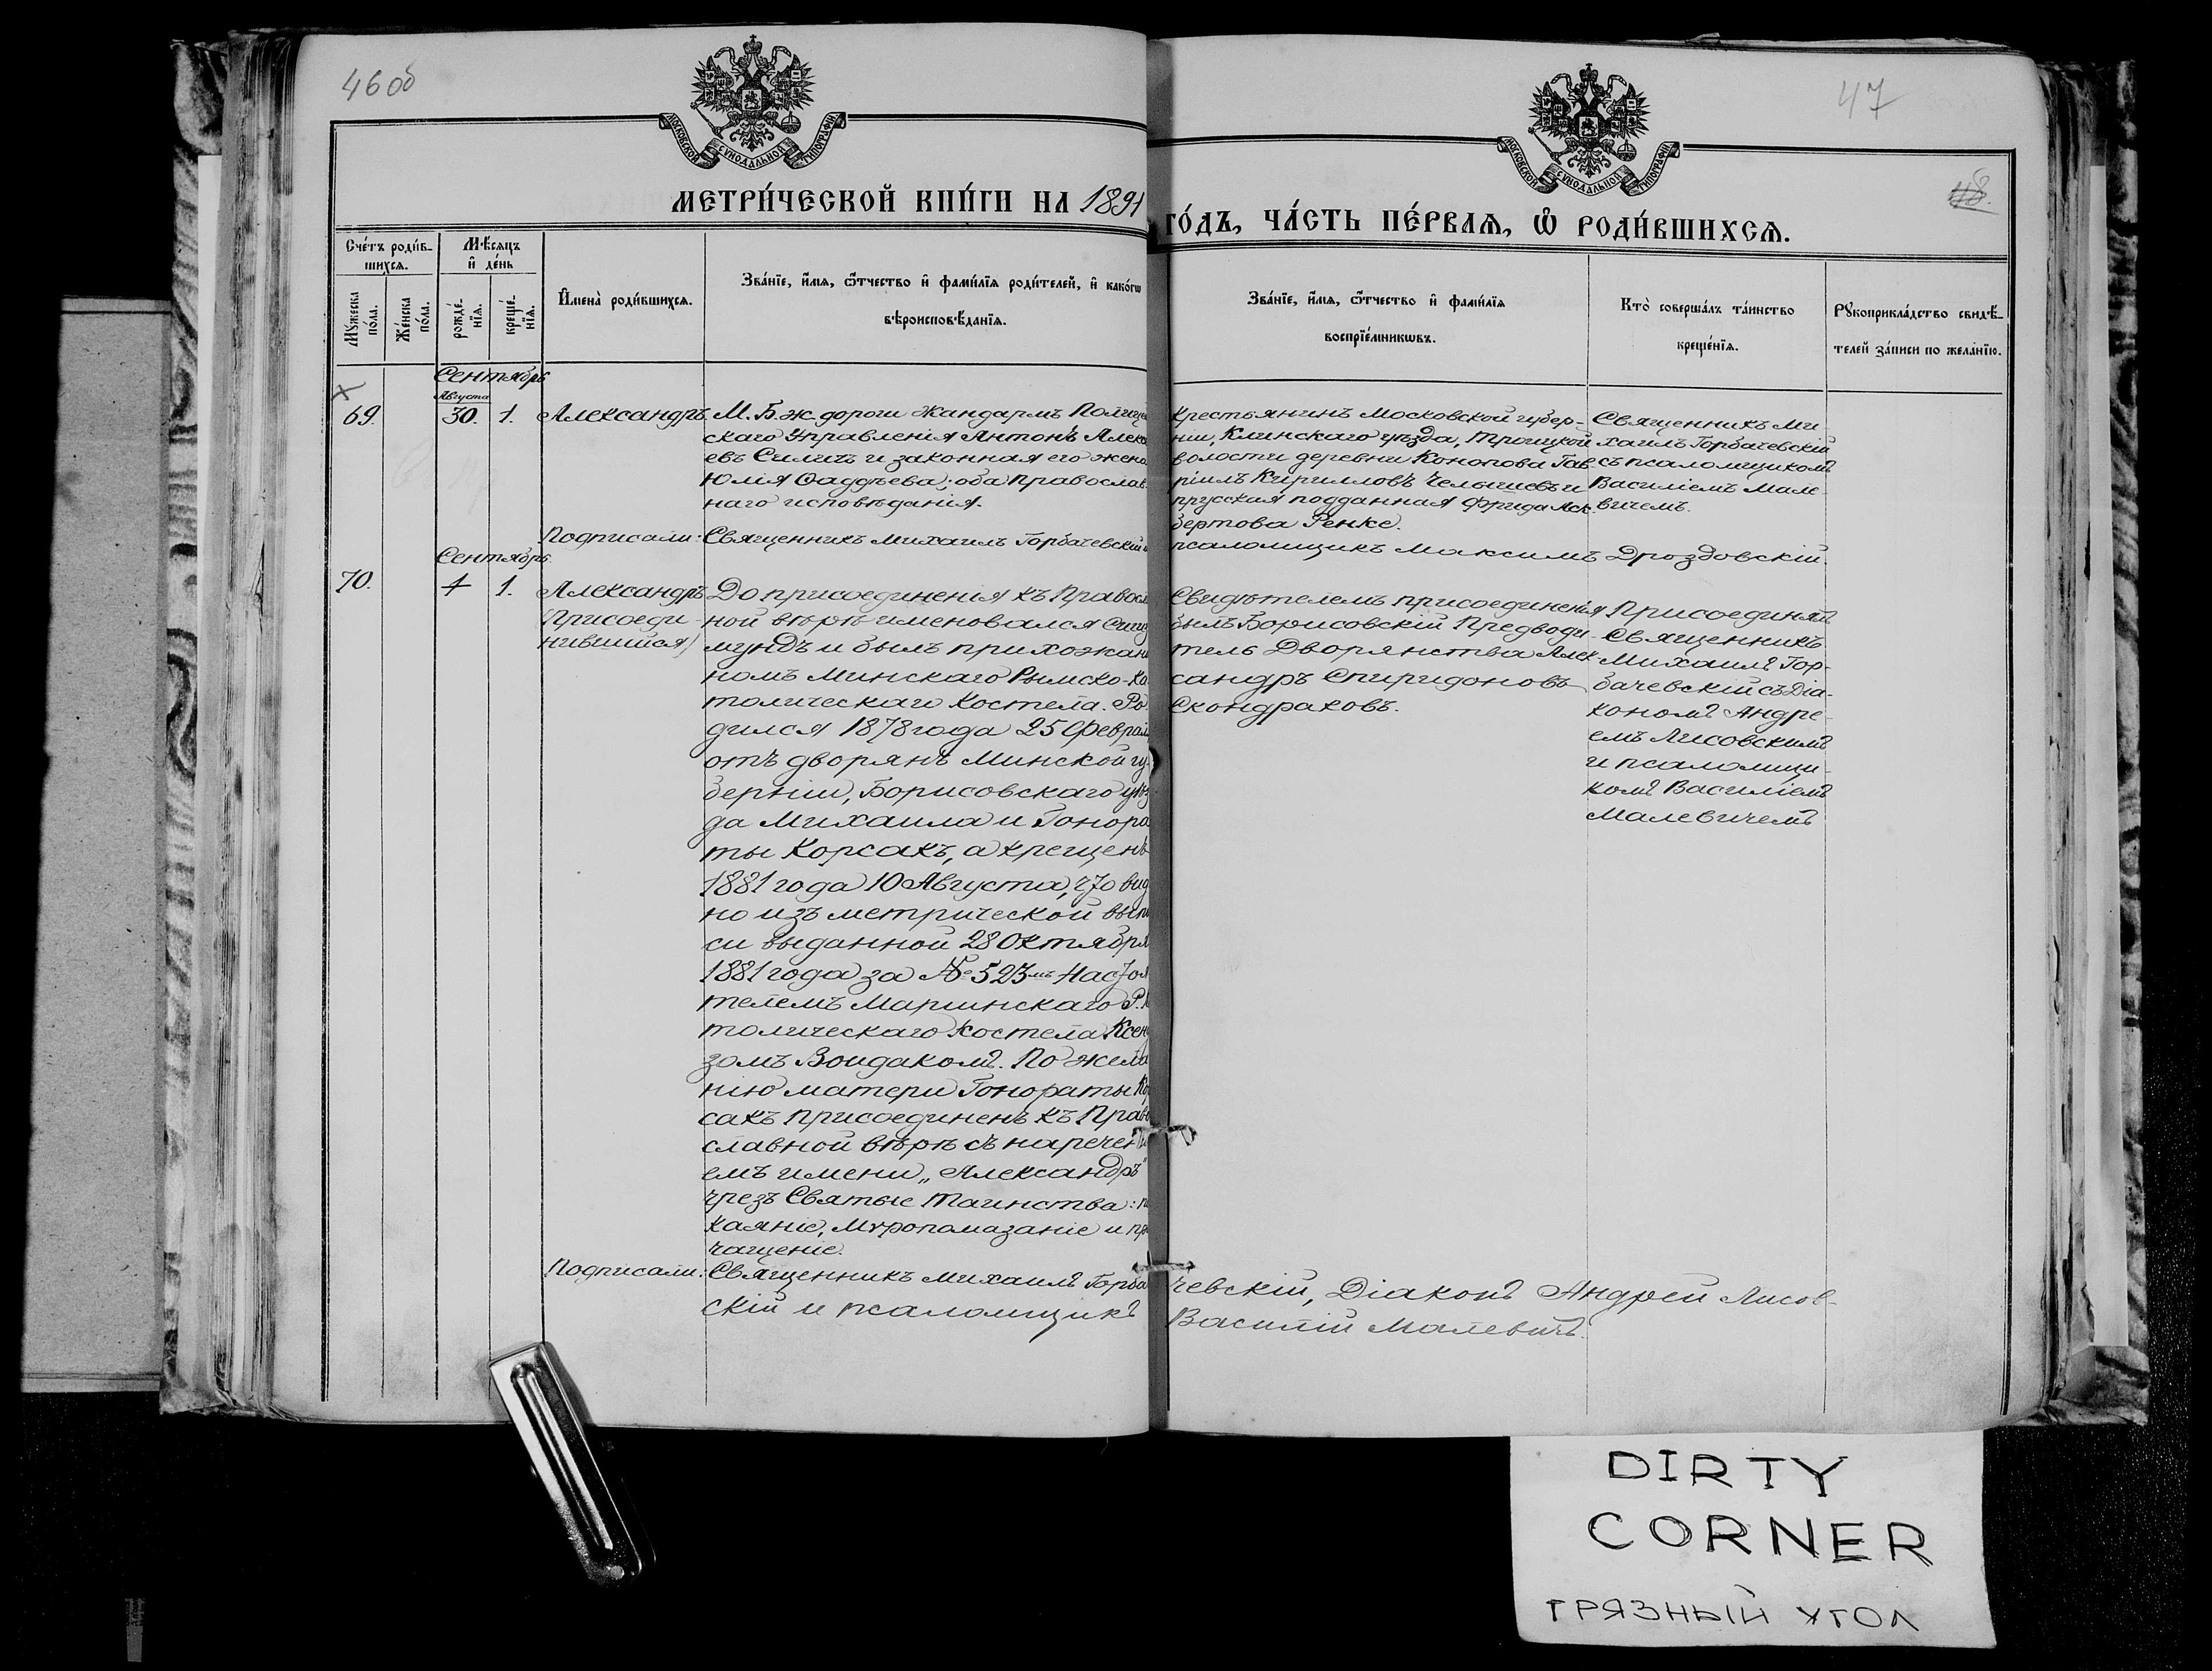 46 об
47
48.
МОСКОВСКОЙ СѴНОДАЛЬНОЙ ТИПОГРАФІИ
МОСКОВСКОЙ СѴНОДАЛЬНОЙ ТИПОГРАФІИ
МЕТРИ́ЧЕСКОЙ КНИ́ГИ НА 1891
ГО́ДЪ, ЧА́СТЬ ПЕ́РВАЯ, Ѡ РОДИ́ВШИХСЯ.
Сче́тъ роди́в-
шихся.
Мѣ́сяцъ
и де́нь
Мꙋжеска
по́ла.
Же́нска
по́ла.
рожде́-
нїя.
креще́-
нїя.
И҆мена̀ роди́вшихся.
Зва́нїе, и҆́мя, ѻ҆́тчество и҆ фами́лїя роди́телей, и҆ како́гѡ
вѣроисповѣ́данїя.
Зва́нїе, и҆́мя, ѻ҆́тчество и҆ фами́лїя
воспрїе́мникѡвъ.
Кто̀ соверша́лъ та́инство
креще́нїя.
Рꙋкоприкла́дство свидѣ́-
телей за́писи по жела́нїю.
Сентябрь
Августа
69. 30. 1. Александръ
М. Б. ж. дороги жандармъ Полицей
скаго Управленія Антонъ Алекс
евъ Силичъ и законная его жена
Юлія Фаддѣева; оба православ
наго исповѣданія.
Крестьянинъ Московской губер-
ніи, Клинскаго уѣзда, Троицкой
волости деревни Конопова Гав-
ріилъ Кирилловъ Челышевъ и
прусская подданная Фрида Аск-
бертова Ренке.
Священникъ Ми-
хаилъ Горбачевскій
съ псаломщикомъ
Василіемъ Мале-
вичемъ.
Подписали: Священникъ Михаилъ Горбачевскій и
псаломщикъ Максимъ Дроздовскій.
Сентябрь
70. 1 1. Александръ
(Присоеди-
нившійся)
До присоединенія къ Правосл
ной вѣрѣ именовался Сигиз
мундъ и былъ прихожани
номъ Минскаго Римско-Ка
толическаго Костела. Ро
дился 1878 года 25 Февраля
отъ дворянъ Минской гу-
берніи, Борисовскаго уѣз
да Михаила и Гонора
ты Корсакъ, а крещенъ
1881 года 10 Августа, что вид
но изъ метрической выпи
си выданной 28 Октября
1881 года за № 523мъ Настоя
телемъ Маріинскаго Р. К
толическаго Костела Ксен
зомъ Воидакомъ. По жела
нію матери Гонораты Кор
сакъ присоединенъ къ Право
славной вѣрѣ съ наречені
емъ имени „Александръ"
чрезъ Святые Таинства: по
каяніе, Мѵропомазаніе и при
чащеніе.
Свидѣтелемъ присоединенія
былъ Борисовскій Предводи-
тель Дворянства Алек-
сандръ Спиридоновъ
Скондраковъ.
Присоединялъ
Священникъ
Михаилъ Гор-
бачевскій съ Діа-
кономъ Андре-
емъ Лисовскимъ
и псаломщи-
комъ Василіемъ
Малевичемъ
Подписали: Священникъ Михаилъ Горба
чевскій, Діаконъ Андрей Лисов-
скій и псаломщикъ
Василій Малевичъ.
DIRTY
CORNER
ГРЯЗНЫЙ УГОЛ